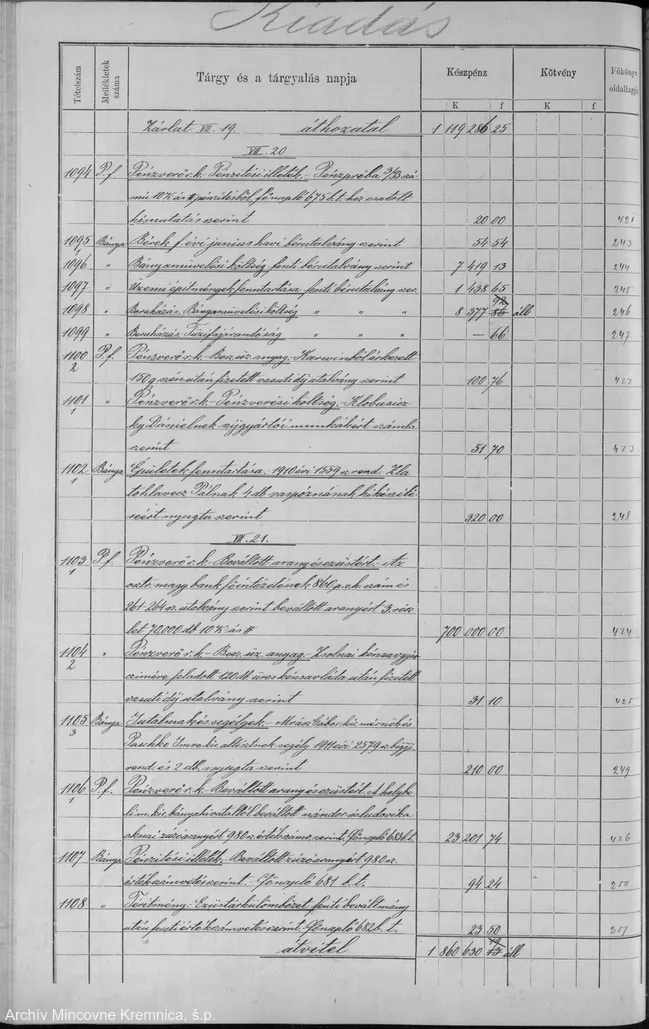 Kiadás
Tételszám Mellékletek száma Tárgy és a tárgyalás napja Készpénz Kötvény Főkönyv oldallapja
K f K f
Zárlat VII. 19. áthozatal 1 119 286 25
VII. 20
1094 P. f. Pénzverő r. k. Pénzilési illeték. Pénzpróba
10 K ás pénzilésből, főnapló 675 b. t. hez csatolt
kimutatás szerint 20 00 421
1095 1 Bánya Bérek, f. évi junius havi bérutalvány szerint 54 54 243
1096 " Bányamüvelési költség fenti bérutalvány szerint 7 419 13 244
1097 " Üzemi építmények fenntartása fenti bérutalvány szer. 1 438 65 245
1098 " Beruházás. Bányamüvelési költség " " " 8 377 áll 246
1099 " Beruházás. Tüzifajárandóság " " " — 66 247
1100 2 P. f. Pénzverő r. k. Besz. üz. anyag. Karwinból érkezett
150 q szén után fizetett vasuti díj utalvány szerint 100 76 422
1101 1 " Pénzverő r. k. Pénzverési költség. Klobusicz-
ky Dánielnek szijgyártói munkákért számla
szerint 51 70 423
1102 1 Bánya Épületek fenntartása. 1910 évi 1559 sz. rend.
Pálnak 4 db vaspóznának kikészité-
séért nyugta szerint 320 00 248
VII. 21.
1103 1 P. f. Pénzverő r. k. Beváltott arany és ezüstért. Az
osztr. magy. bank főintézetének 860 szám és
261-264 sz. utalvány szerint beváltott aranyért 3. rész-
let 70,000 db 10 K ás 700 000 00 424
1104 2 " Pénzverő r. k. Besz. üz. anyag. Zsolnai kénsavgyár
címére feladott üres kénsav után fizetett
vasuti díj utalvány szerint 31 10 425
1105 3 Bánya Jutalmak és segélyek. Gábor kir. mérnök és
Paschke Imre kir. altisztnek segély 1911 évi 2579 sz.
rend. és 2 db. nyugta szerint 210 00 249
1106 1 P. f. Pénzverő r. k. Beváltott arany és ezüstért. A helybe-
li m. kir. bányahivataltól beváltott nándor és ludovika
aknai zúzóaranyért 980 sz. értékszámv. szerint. Főnapló 683 b. t. 23 201 74 426
1107 Bánya Pénzilési illeték. Beváltott zúzóaranyért 980 sz.
értékszámvetés szerint. Főnapló 681 b. t. 94 24 250
1108 " Termény. Ezüstárkülömbözet fenti beváltmány
után fenti értékszámvetés szerint. Főnapló 682 b. t. 23 50 251
átvitel 1 860 630 áll
Archív Mincovne Kremnica, š.p.